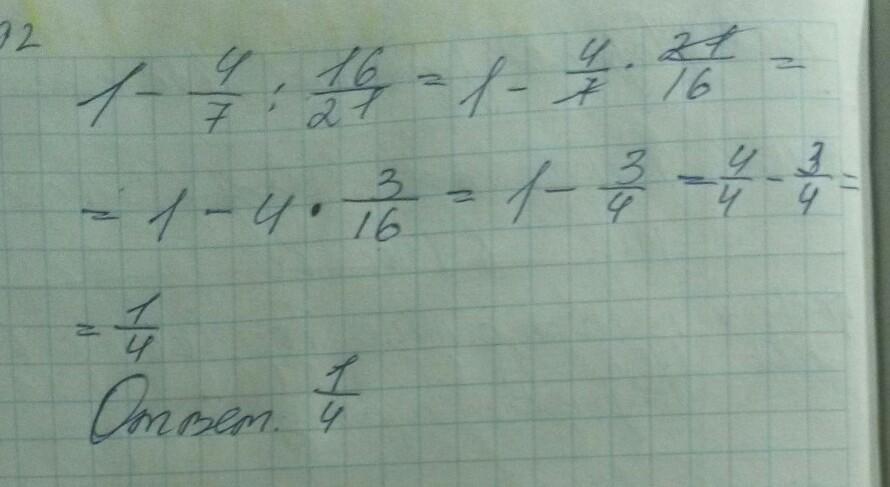 92
1 - 4/7 : 16/21 = 1 - 4/7 · 21/16 =
= 1 - 4 · 3/16 = 1 - 3/4 = 4/4 - 3/4 =
= 1/4
Ответ. 1/4